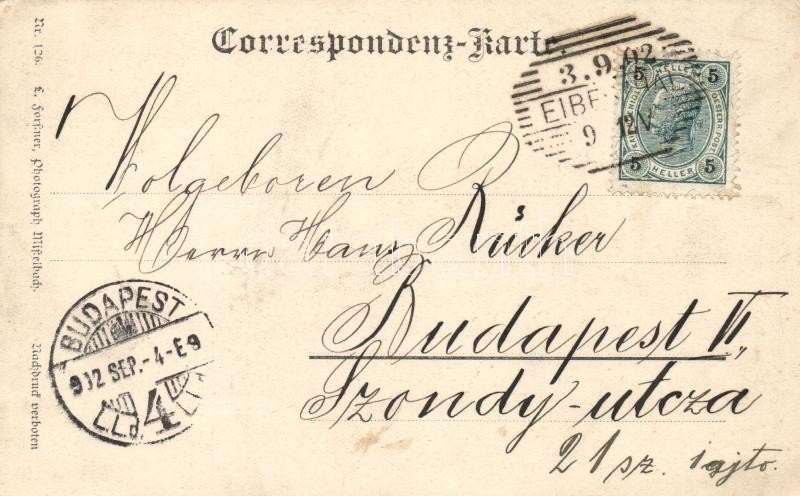 Correspondenz-Karte.
3.9.02
EIBE
9 12V
5 5
HELLER
5 HELLER 5
Wolgeboren
Herrn Hans Rücker
Budapest VI„
Szondy-utcza
21 sz.
BUDAPEST
902 SEP.-4-E9
4
Nr. 126. L. Forstner, Photograph Mistelbach. Nachdruck verboten